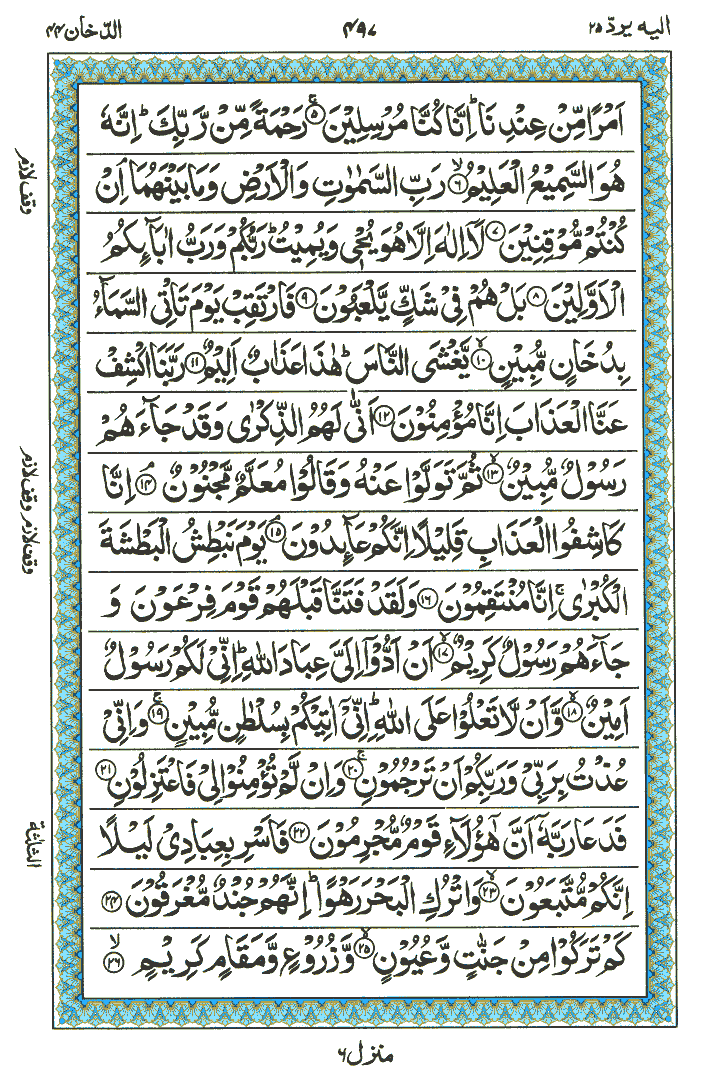 الیه یردّ ۲۵
۴۹۷
الدّخان ۴۴
اَمْرًا مِّنْ عِنْدِنَا ؕ اِنَّا كُنَّا مُرْسِلِیْنَ ۚ۝۵ رَحْمَةً مِّنْ رَّبِّكَ ؕ اِنَّهٗ
هُوَ السَّمِیْعُ الْعَلِیْمُ ۙ۝۶ رَبِّ السَّمٰوٰتِ وَ الْاَرْضِ وَ مَا بَیْنَهُمَا ۘ اِنْ
كُنْتُمْ مُّوْقِنِیْنَ ۝۷ لَاۤ اِلٰهَ اِلَّا هُوَ یُحْیٖ وَ یُمِیْتُ ؕ رَبُّكُمْ وَ رَبُّ اٰبَآىِٕكُمُ
الْاَوَّلِیْنَ ۝۸ بَلْ هُمْ فِیْ شَكٍّ یَّلْعَبُوْنَ ۝۹ فَارْتَقِبْ یَوْمَ تَاْتِی السَّمَآءُ
بِدُخَانٍ مُّبِیْنٍ ۙ۝۱۰ یَّغْشَی النَّاسَ ؕ هٰذَا عَذَابٌ اَلِیْمٌ ۝۱۱ رَبَّنَا اكْشِفْ
عَنَّا الْعَذَابَ اِنَّا مُؤْمِنُوْنَ ۝۱۲ اَنّٰی لَهُمُ الذِّكْرٰی وَ قَدْ جَآءَهُمْ
رَسُوْلٌ مُّبِیْنٌ ۙ۝۱۳ ثُمَّ تَوَلَّوْا عَنْهُ وَ قَالُوْا مُعَلَّمٌ مَّجْنُوْنٌ ۘ۝۱۴ اِنَّا
كَاشِفُوا الْعَذَابِ قَلِیْلًا اِنَّكُمْ عَآىِٕدُوْنَ ۘ۝۱۵ یَوْمَ نَبْطِشُ الْبَطْشَةَ
الْكُبْرٰی ۚ اِنَّا مُنْتَقِمُوْنَ ۝۱۶ وَ لَقَدْ فَتَنَّا قَبْلَهُمْ قَوْمَ فِرْعَوْنَ وَ
جَآءَهُمْ رَسُوْلٌ كَرِیْمٌ ۙ۝۱۷ اَنْ اَدُّوْۤا اِلَیَّ عِبَادَ اللّٰهِ ؕ اِنِّیْ لَكُمْ رَسُوْلٌ
اَمِیْنٌ ۙ۝۱۸ وَّ اَنْ لَّا تَعْلُوْا عَلَی اللّٰهِ ؕ اِنِّیْۤ اٰتِیْكُمْ بِسُلْطٰنٍ مُّبِیْنٍ ۚ۝۱۹ وَ اِنِّیْ
عُذْتُ بِرَبِّیْ وَ رَبِّكُمْ اَنْ تَرْجُمُوْنِ ۚ۝۲۰ وَ اِنْ لَّمْ تُؤْمِنُوْا لِیْ فَاعْتَزِلُوْنِ ۝۲۱
فَدَعَا رَبَّهٗۤ اَنَّ هٰۤؤُلَآءِ قَوْمٌ مُّجْرِمُوْنَ ۝۲۲ فَاَسْرِ بِعِبَادِیْ لَیْلًا
اِنَّكُمْ مُّتَّبَعُوْنَ ۙ۝۲۳ وَ اتْرُكِ الْبَحْرَ رَهْوًا ؕ اِنَّهُمْ جُنْدٌ مُّغْرَقُوْنَ ۝۲۴
كَمْ تَرَكُوْا مِنْ جَنّٰتٍ وَّ عُیُوْنٍ ۙ۝۲۵ وَّ زُرُوْعٍ وَّ مَقَامٍ كَرِیْمٍ ۙ۝۲۶
وقف لازم
وقف لازم وقف لازم
الثلثة
منزل ۶